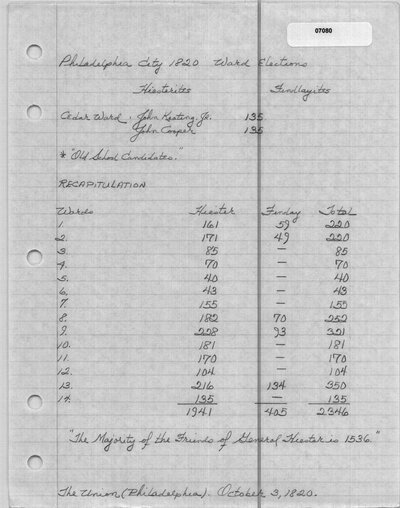 07080
Philadelphia City 1820 Ward Elections
Hiesterites Findlayites
Cedar Ward. John Keating, Jr. 135
John Cooper 135
* "Old School Candidates."
RECAPITULATION
Wards Hiester Finday Total
1. 161 59 220
2. 171 49 220
3. 85 — 85
4. 70 — 70
5. 40 — 40
6. 43 — 43
7. 155 — 155
8. 182 70 252
9. 228 93 321
10. 181 — 181
11. 170 — 170
12. 104 — 104
13. 216 134 350
14. 135 — 135
1941 405 2346
"The Majority of the Friends of General Hiester is 1536."
The Union (Philadelphia). October 3, 1820.